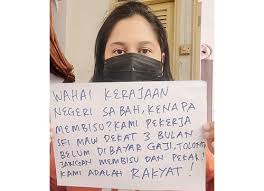 WAHAI KERAJAAN
NEGERI SABAH, KENAPA
MEMBISU? KAMI PEKERJA
SFI MAW DEKAT 3 BULAN
BELUM DIBAYAR GAJI. TOLONG
JANGAN MEMBISU DAN PEKAK!
KAMI ADALAH RAKYAT!